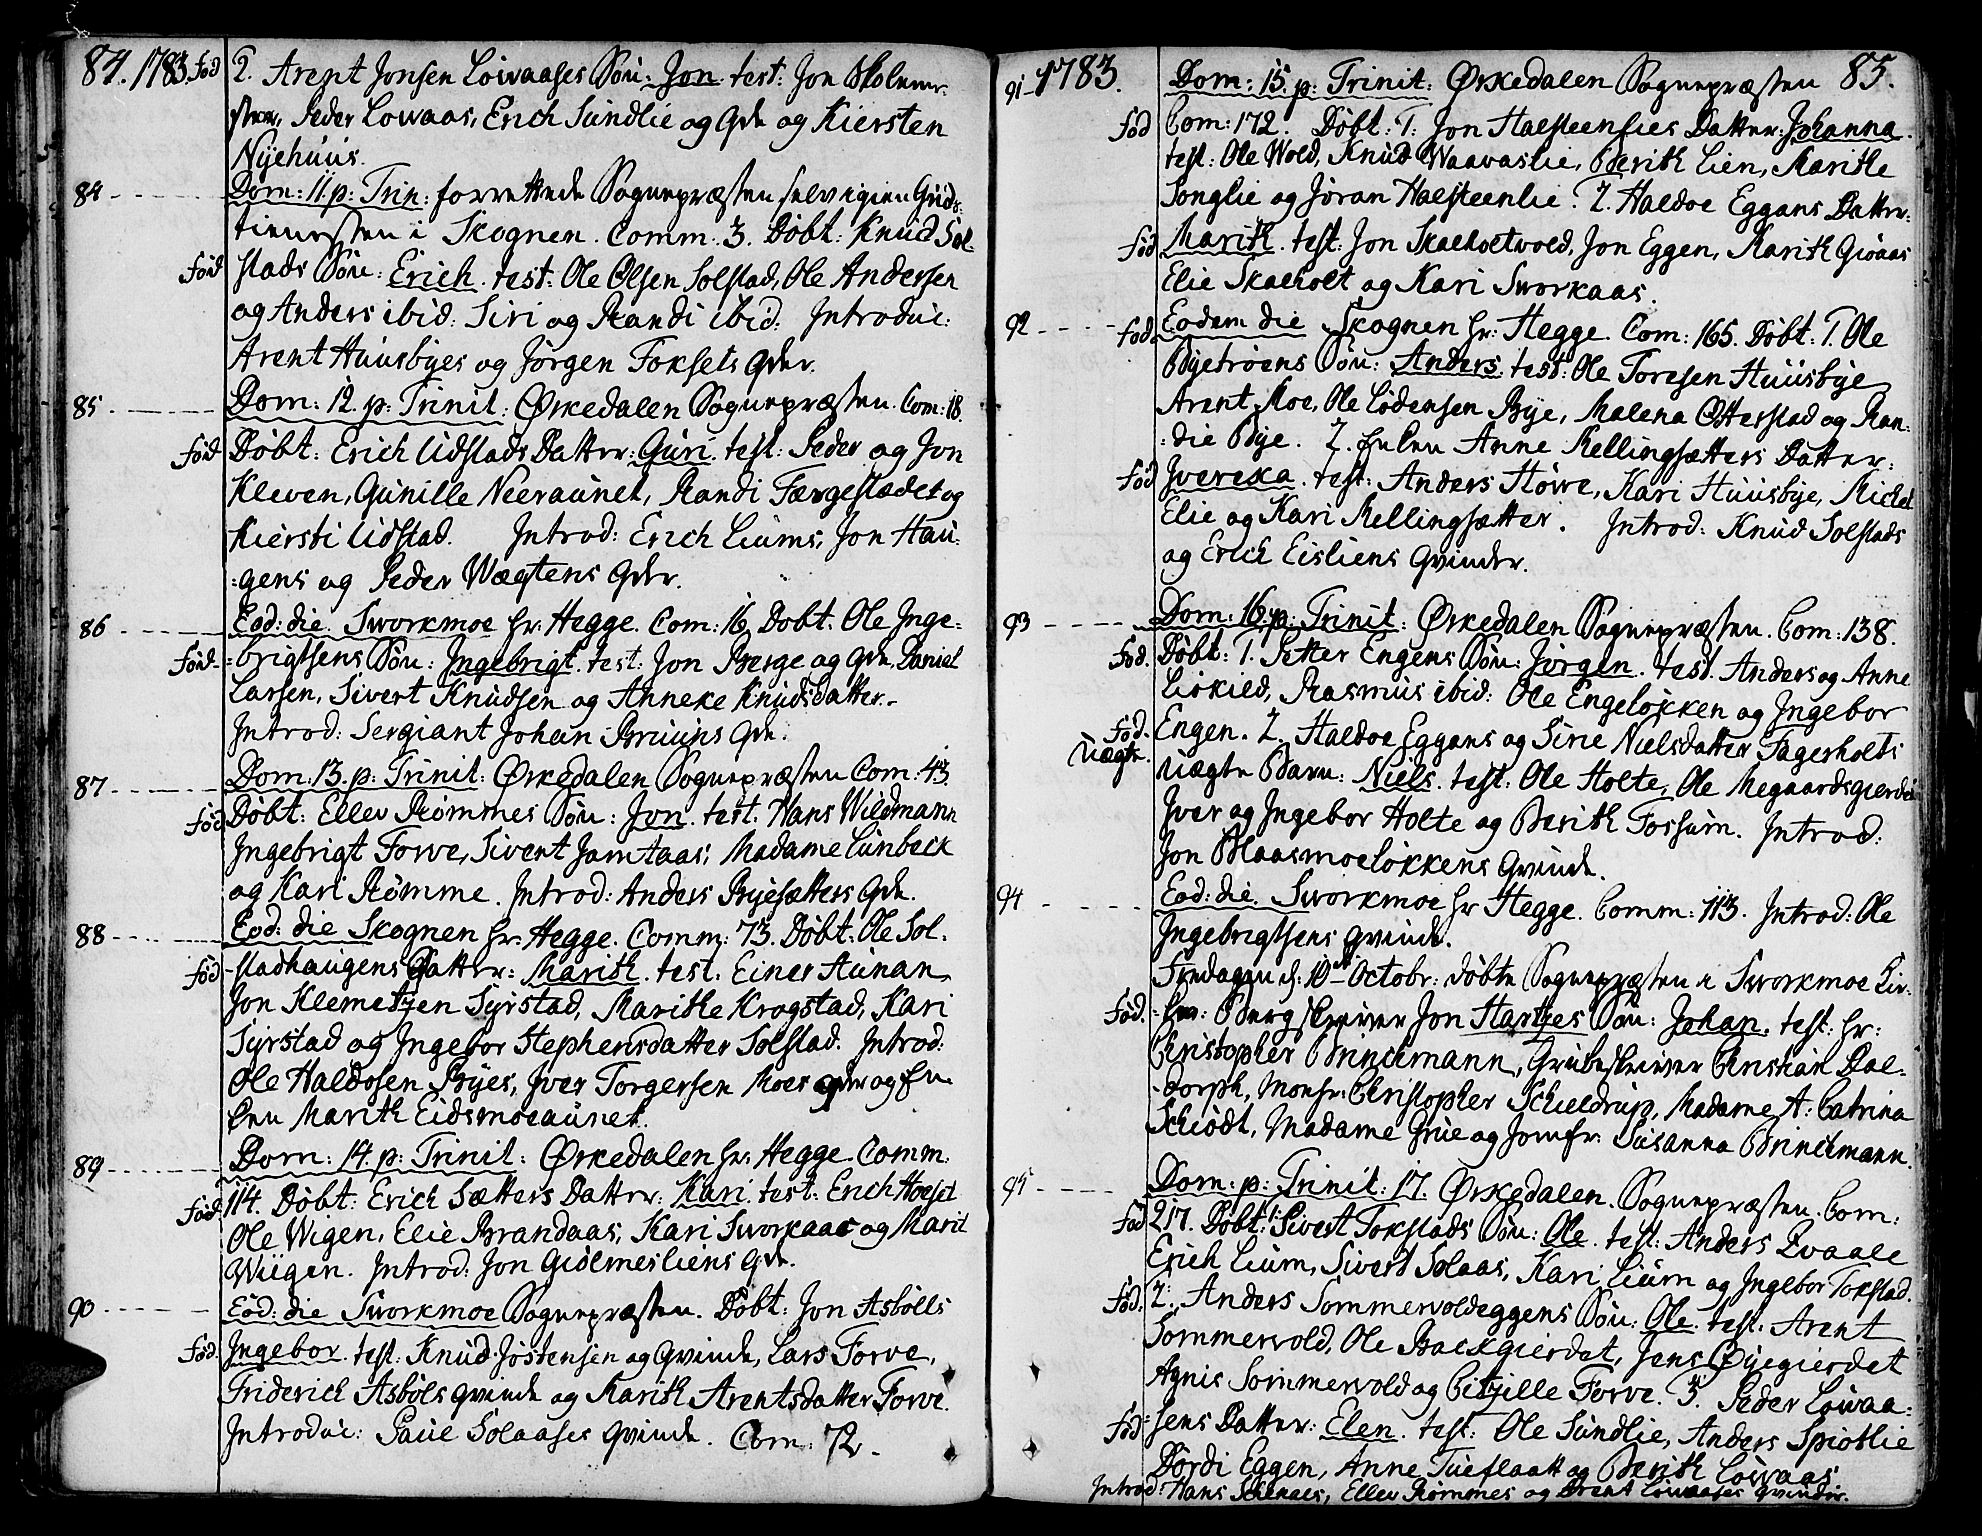 84. 1783 fød 2. Arent Jonsen Lowaases Søn: Jon. test: Jon Skolem:
ster, Peder Lowaas, Erich Sundlie og Qvde og Kiersten
Nyehuus.
84 Dom: 11. p: Trin: forrettede Sognepræsten selv igien Guds:
tienesten i Skognen. Comm: 3. Døbt: Knud Sol-
fød stads Søn: Erich. test: Ole Olsen Solstad, Ole Andersen
og Anders ibid: Siri og Randi ibid: Introduc:
Arent Huusbyes og Jørgen Foksets Qvdr.
85 Dom: 12. p: Trinit: Ørkedalen Sognepræsten. Com: 18.
fød Døbt: Erich Udstads Datter: Guri. test: Peder og Jon
Kleven, Gunille Neeraunet, Randi Færgestædet og
Kiersti Udstad. Introd: Erich Liums, Jon Hau:
:gens og Peder Wægtens Qvdr.
86 Eod: die Sworkmoe Hr: Hegge. Com: 16. Døbt. Ole Inge-
fød :brigtsens Søn: Ingebrigt. test: Jon Berge og Qvde, Daniel
Larsen, Sivert Knudsen og Anneke Knudsdatter.-
Introd: Sergiant Johan Bruuns Qvde.
87 Dom: 13. p: Trinit: Ørkedalen Sognepræsten Com: 43.
fød Døbt: Ellev Rømmes Søn: Jon. test. Hans Wildmann
Ingebrigt Forve, Sivert Jamtaas, Madame Lünbeck
og Kari Rømme. Introd: Anders Byesætters Qvde.
88 Eod: die Skognen Hr: Hegge. Comm: 73. Døbt: Ole Sol-
fød -stadhaugens Datter: Marith. test. Einer Aunan
Jon Klemetzen Syrstad, Marithe Krogstad, Kari
Syrstad og Ingebor Stephensdatter Solstad. Introd:
Ole Haldosen Byes, Iver Torgersen Moes Qvder og En-
ken Marith Eidsmoeaunet.
89 Dom: 14. p: Trinit: Ørkedalen Hr: Hegge. Comm:
fød 114. Døbt: Erich Sætters Datter: Kari. test: Erich Hoeset
Ole Wigen, Elie Brandaas, Kari Sworkaas og Marit
Wiigen. Introd: Jon Giølmesliens Qvde.
90 Eod: die Sworkmoe Sognepræsten. Døbt: Jon Asbølls
fød Ingebor. test: Knud Jostensen og Qvinde, Lars Forve,
Friderich Asbøls Qvinde og Marith Arentsdatter Forve.
Introduc: Paul Solaases Qvinde. Com: 72.
91 1783. Dom: 15. p: Trinit: Ørkedalen Sognepræsten 85.
fød Com: 172. Døbt: 1. Jon Halsteenlies Datter: Johanna.
test: Ole Wold, Knud Waavaslie, Berith Lien, Marithe
Songlie og Jøran Halsteenlie. 2. Haldoe Eggans Datter:
fød Marith. test: Jon Skaeholtwold, Jon Eggen, Marith Gioaas
Elie Skaeholt og Kari Sworkaas.
92 fød Eodem die Skognen Hr: Hegge. Com: 165. Døbt: 1. Ole
Byetrøens Søn: Anders. test: Ole Toresen Huusbye
Arent Moe, Ole Lodensen Bye, Malena Otterstad og Ran:
:die Bye. 2. Enken Anne Kellingsætters Datter:
fød Ivereka. test: Anders Howe, Kari Huusbye, Michel
Elie og Kari Kellingsætter. Introd: Knud Solstads
og Erich Eisliens Qvinder.
93 Dom: 16. p: Trinit: Ørkedalen Sognepræsten. Com: 138.
fød. Døbt: 1. Petter Engens Søn: Jørgen. test. Anders og Anne
Liøkild, Rasmus ibid: Ole Engeløkken og Ingebor
fød. Engen. 2. Haldoe Eggans og Sirie Nielsdatter Fagerholts
Uægte. Uægte Barn: Niels. test: Ole Holte, Ole Megaardsgierdet
Iver og Ingebor Holte og Berith Fossum. Introd:
Jon Blaasmoeløkkens Qvinde.
94 Eod: die. Sworkmoe Hr Hegge. Comm: 113. Introd: Ole
Ingebrigtsens Qvinde.
Fredagen d: 10de Octobr: døbte Sognepræsten i Sworkmoe Kir-
fød. :ke: Bergskriver Jon Hartzes Søn: Johan. test: Hr:
Christopher Brinckmann, Grubeskriver Christian Dal-
-dorph, Monsr: Christopher Schieldrup, Madame A: Catrina
Schiødt, Madame Grue og Jomfr: Susanna Brinckmann.
95 Dom: p: Trinit: 17. Ørkedalen. Sognepræsten. Com:
fød 217. Døbt: 1. Sivert Tokstads Søn: Ole. test: Anders Evaale
Erich Lium, Sivert Solaas, Kari Lium og Ingebor Tokstad.
fød. 2. Anders Sommervoldeggens Søn: Ole. test: Arent
Sommervold, Ole Backgierdet, Jens Øyegierdet
Agnis Sommervold og Citzille Forve. 3. Peder Lowaa-
fød :sens Datter: Elen. test: Ole Sundlie, Anders Spiotlie
Dordi Eggen, Anne Tueflaatt og Berith Lowaas
Introd: Hans Skenaes, Ellev Rømmes og Arent Lowaases Qvinder.